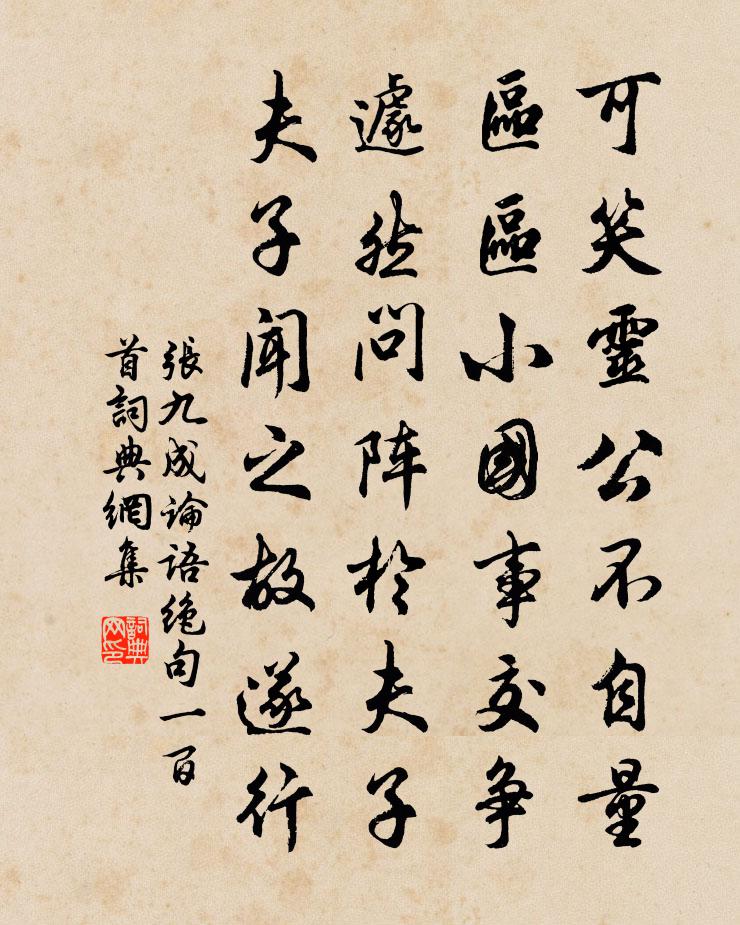 可笑靈公不自量
區區小國事交争
遽然问阵於夫子
夫子闻之故遂行
張九成论语绝句一百
首詞典網集
詞典
网印